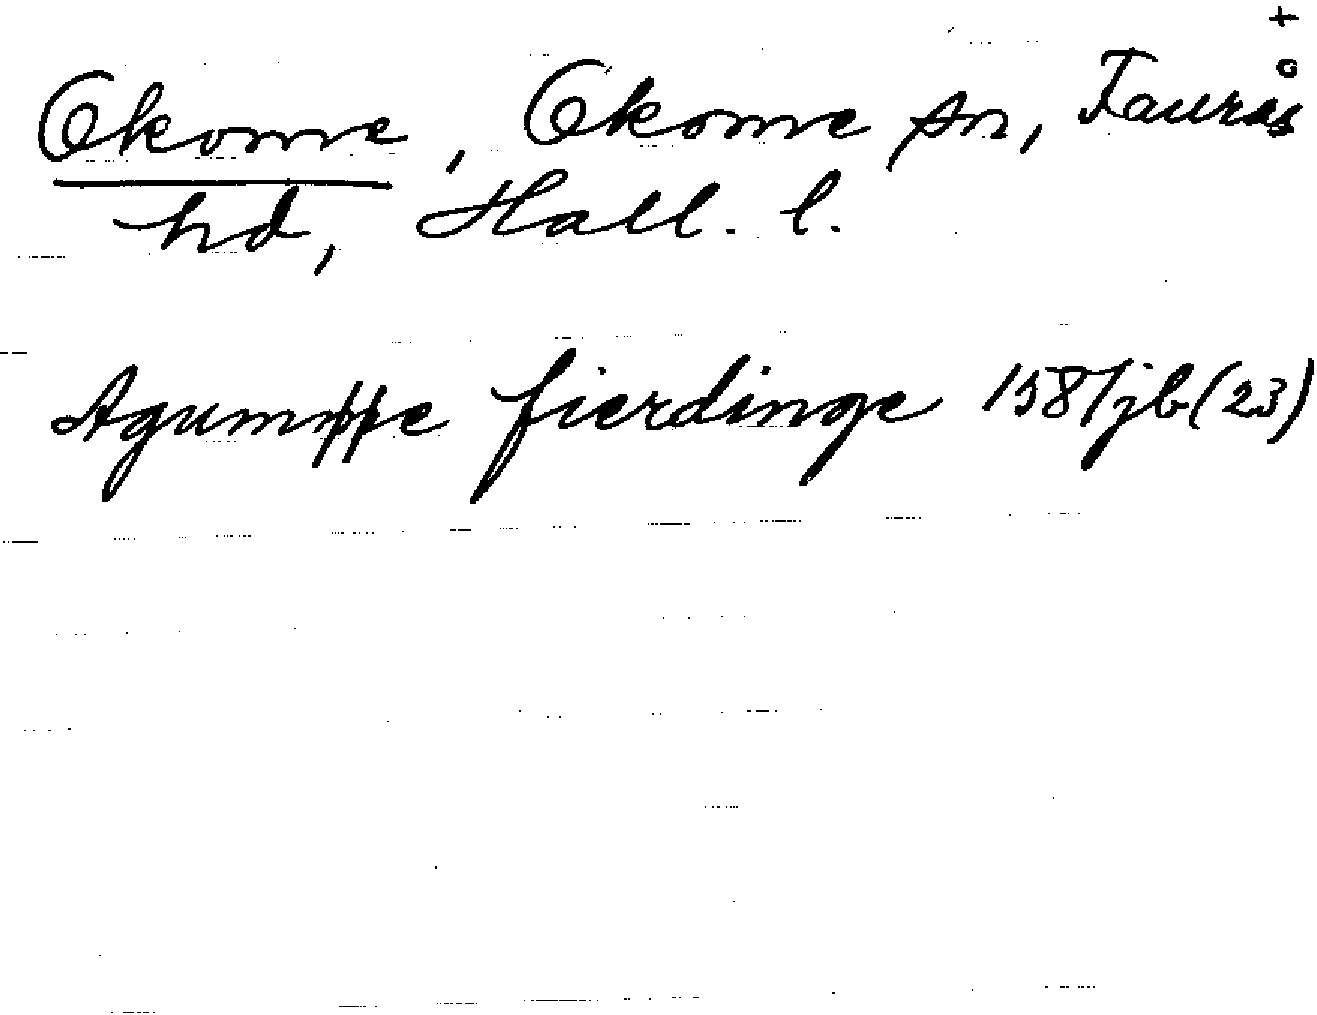 +
Okome, Okome sn, Faurås
hd, Hall. l.
Agumppe fierdinge 1581 jb (23)